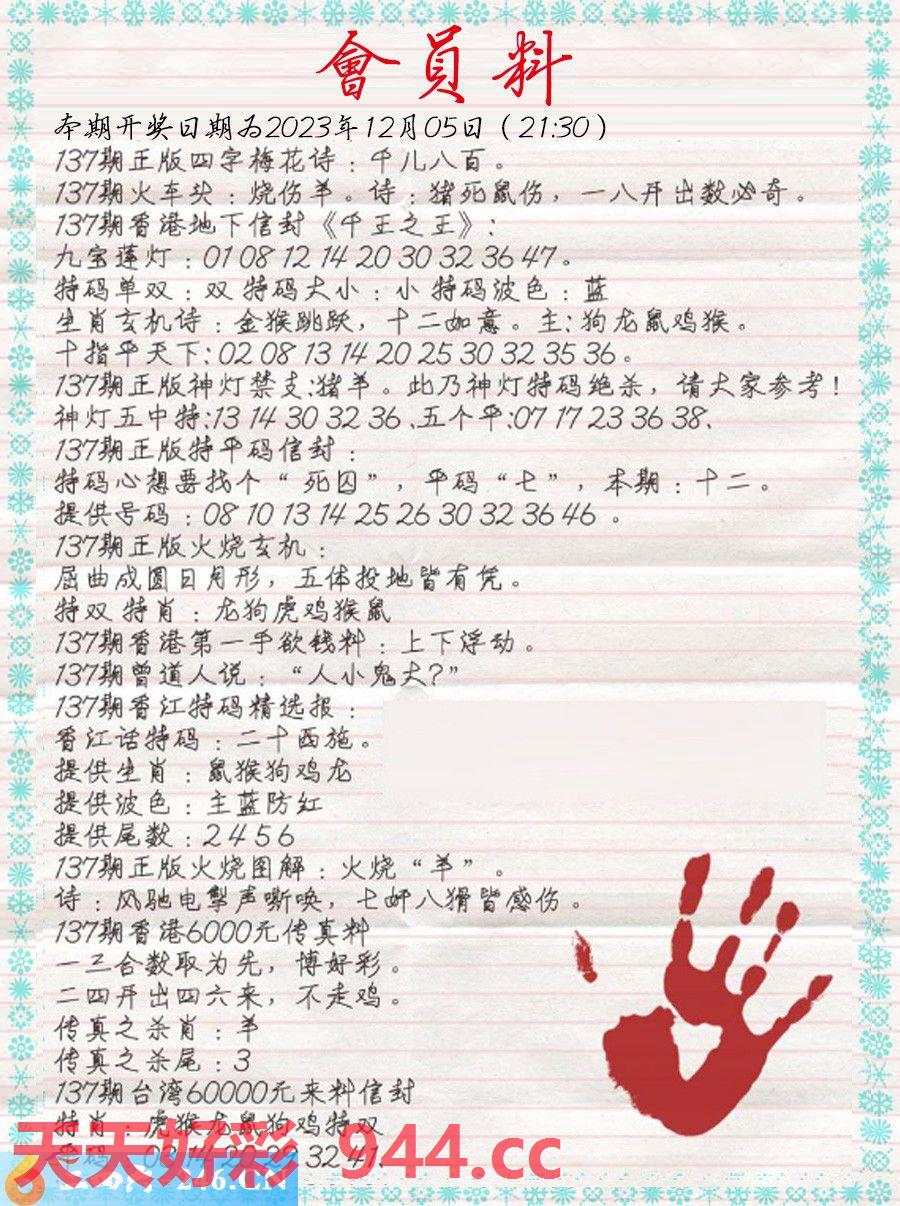 會員料
本期开奖日期为2023年12月05日（21:30）
137期正版四字梅花诗：千儿八百。
137期火车头：烧伤羊。诗：猪死鼠伤，一八开出数必奇。
137期香港地下信封《千王之王》：
九宝莲灯：01 08 12 14 20 30 32 36 47。
特码单双：双 特码大小：小 特码波色：蓝
生肖玄机诗：金猴跳跃，十二如意。主：狗龙鼠鸡猴。
十指平天下：02 08 13 14 20 25 30 32 35 36。
137期正版神灯禁支：猪羊。此乃神灯特码绝杀，请大家参考！
神灯五中特：13 14 30 32 36、五个平：07 17 23 36 38、
137期正版特平码信封：
特码心想要找个“死囚”，平码“七”，本期：十二。
提供号码：08 10 13 14 25 26 30 32 36 46。
137期正版火烧玄机：
屈曲成圆日月形，五体投地皆有凭。
特双 特肖：龙狗虎鸡猴鼠
137期香港第一手欲钱料：上下浮动。
137期曾道人说：“人小鬼大？”
137期香江特码精选报：
香江话特码：二十西施。
提供生肖：鼠猴狗鸡龙
提供波色：主蓝防红
提供尾数：2 4 5 6
137期正版火烧图解：火烧“羊”。
诗：风驰电掣声嘶唤，七奸八猾皆感伤。
137期香港6000元传真料
一三合数取为先，博好彩。
二四开出四六来，不走鸡。
传真之杀肖：羊
传真之杀尾：3
137期台湾60000元来料信封
特肖：虎猴龙鼠狗鸡特双
天天好彩 944.cc
32 41、